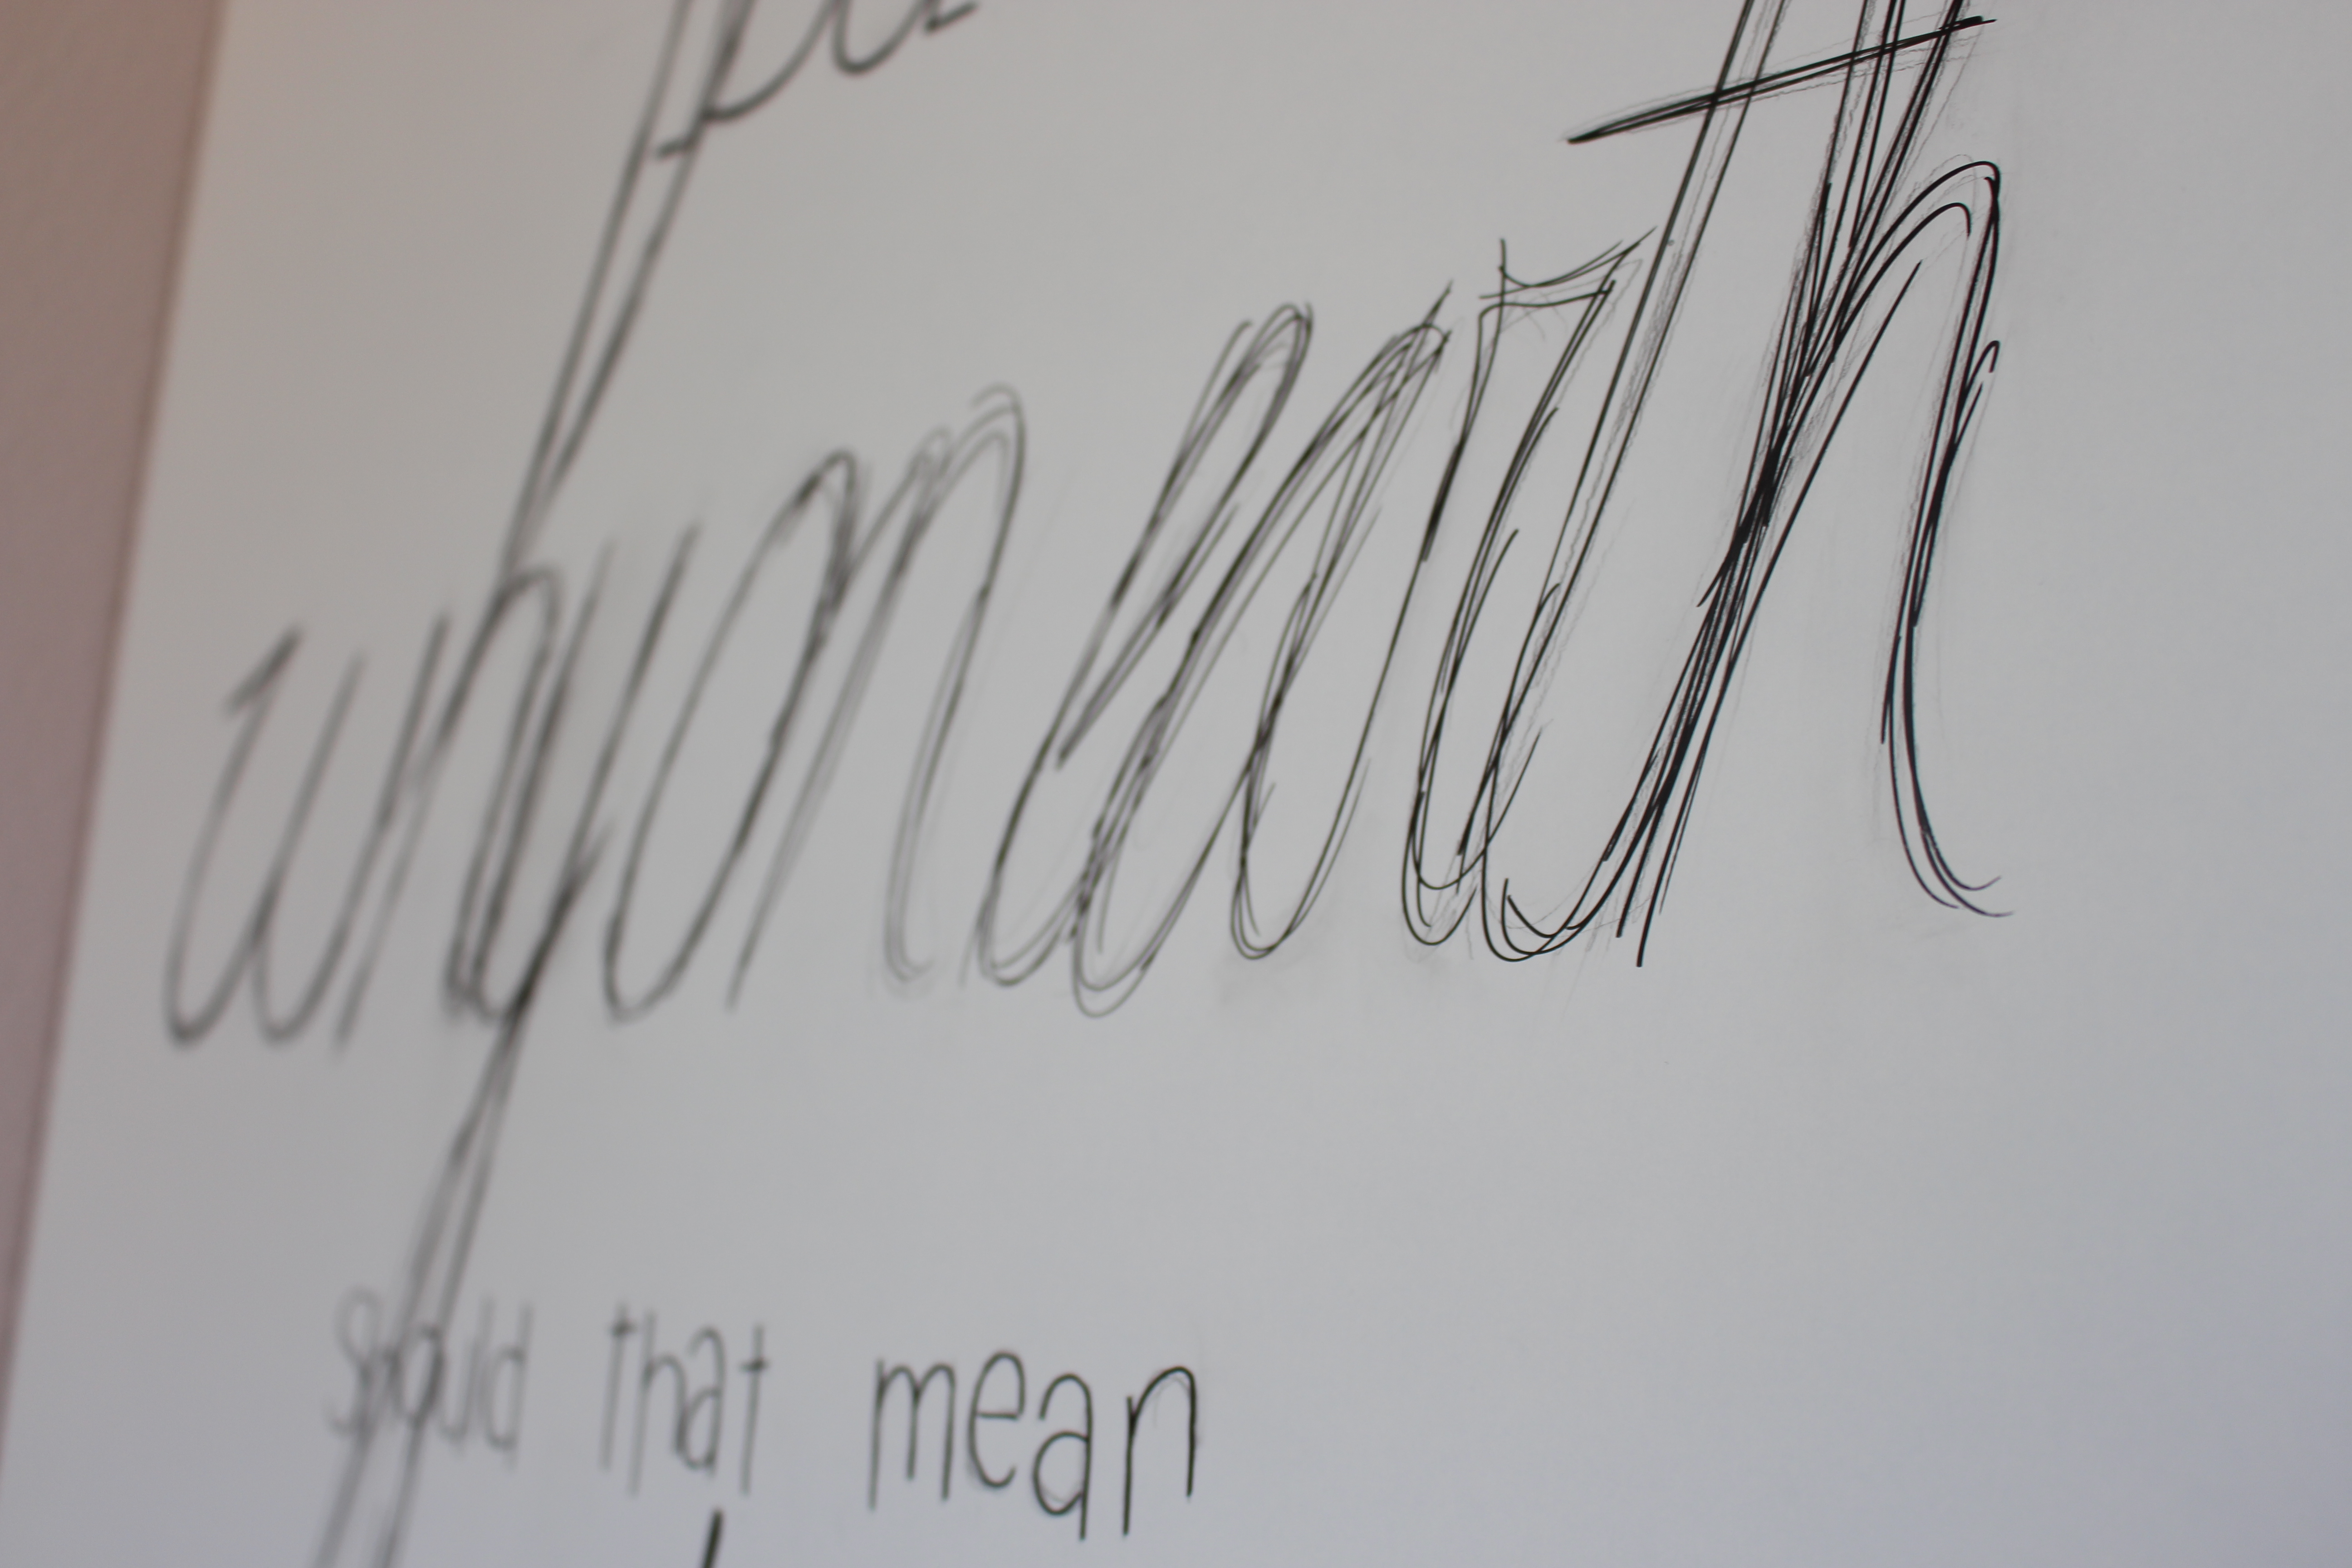 why on earth
Should that mean